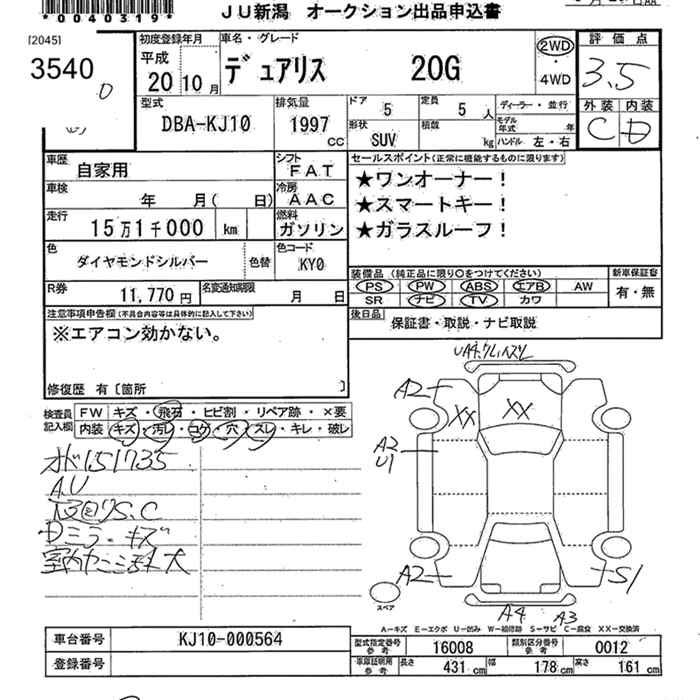 *0040319*
JU新潟 オークション出品申込書
[2045]
3540
0
初度登録年月
平成
20 10 月
車名・グレード
デュアリス 20G
2WD
・
4WD
評価点
3.5
外装 内装
C D
型式
DBA-KJ10
排気量
1997 cc
ドア 5
定員 5 人
形状 SUV
積載 kg
ディーラー・並行
モデル年式 年
ハンドル 左・右
車歴 自家用
シフト FAT
車検 年 月( 日)
冷房 AAC
走行 15万1千000 km
燃料 ガソリン
色 ダイヤモンドシルバー 色替
色コード KY0
R券 11,770 円
名変通知期限 月 日
セールスポイント(正常に機能するものに限ります)
★ワンオーナー!
★スマートキー!
★ガラスルーフ!
装備品(純正品に限り○をつけてください)
PS PW ABS エアB AW
SR ナビ TV カワ
新車保証書
有・無
後日品 保証書・取説・ナビ取説
注意事項申告欄(不具合内容等は具体的に記入して下さい)
※エアコン効かない。
修復歴 有〔箇所 〕
検査員記入欄
FW キズ・飛石・ヒビ割・リペア跡・×要
内装 キズ・汚レ・コゲ・穴・スレ・キレ・破レ
オド151735
A.U
S.C
Dミラーキズ
A2
XX XX
A2
U1
A2
S1
A4 A3
スペア
A-キズ E-エクボ U-凹み W-補修跡 S-サビ C-腐食 XX-交換済
車台番号 KJ10-000564
登録番号
型式指定番号 参考 16008
類別区分番号 参考 0012
車庫証明用 参考 長さ 431 cm 幅 178 cm 高さ 161 cm